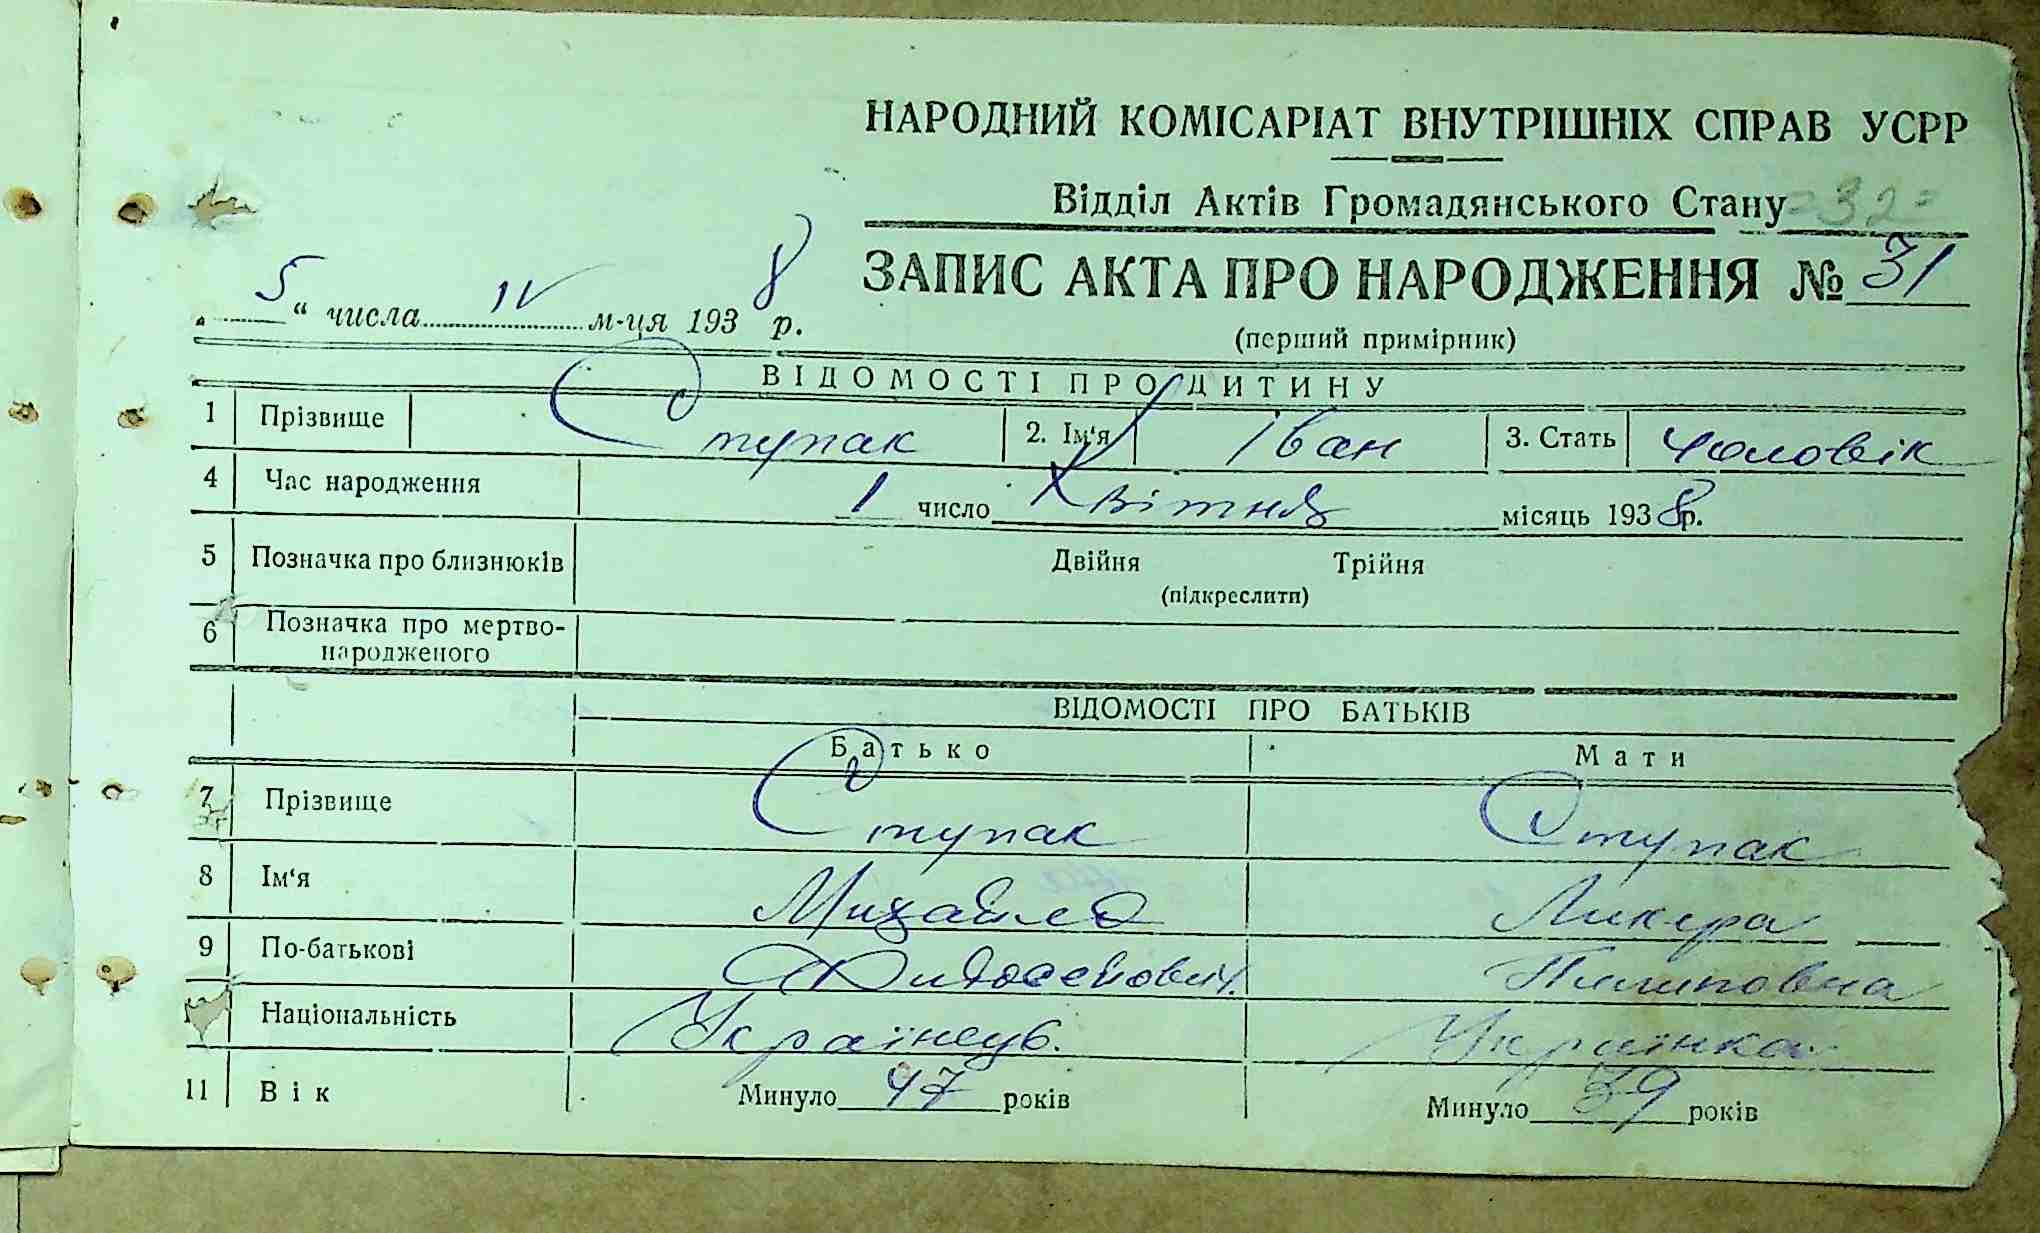 НАРОДНИЙ КОМІСАРІАТ ВНУТРІШНІХ СПРАВ УСРР
Відділ Актів Громадянського Стану =32=
ЗАПИС АКТА ПРО НАРОДЖЕННЯ № 31
„5“ числа IV м-ця 1938 р.
(перший примірник)
ВІДОМОСТІ ПРО ДИТИНУ
1 Прізвище Ступак 2. Ім'я Іван 3. Стать чоловік
4 Час народження 1 число Квітня місяць 1938 р.
5 Позначка про близнюків Двійня Трійня
(підкреслити)
6 Позначка про мертво-
народженого
ВІДОМОСТІ ПРО БАТЬКІВ
Батько Мати
7 Прізвище Ступак Ступак
8 Ім'я Михайло Ликера
9 По-батькові Пилиповна
Національність Українець. Українка
11 Вік Минуло 47 років Минуло 39 років